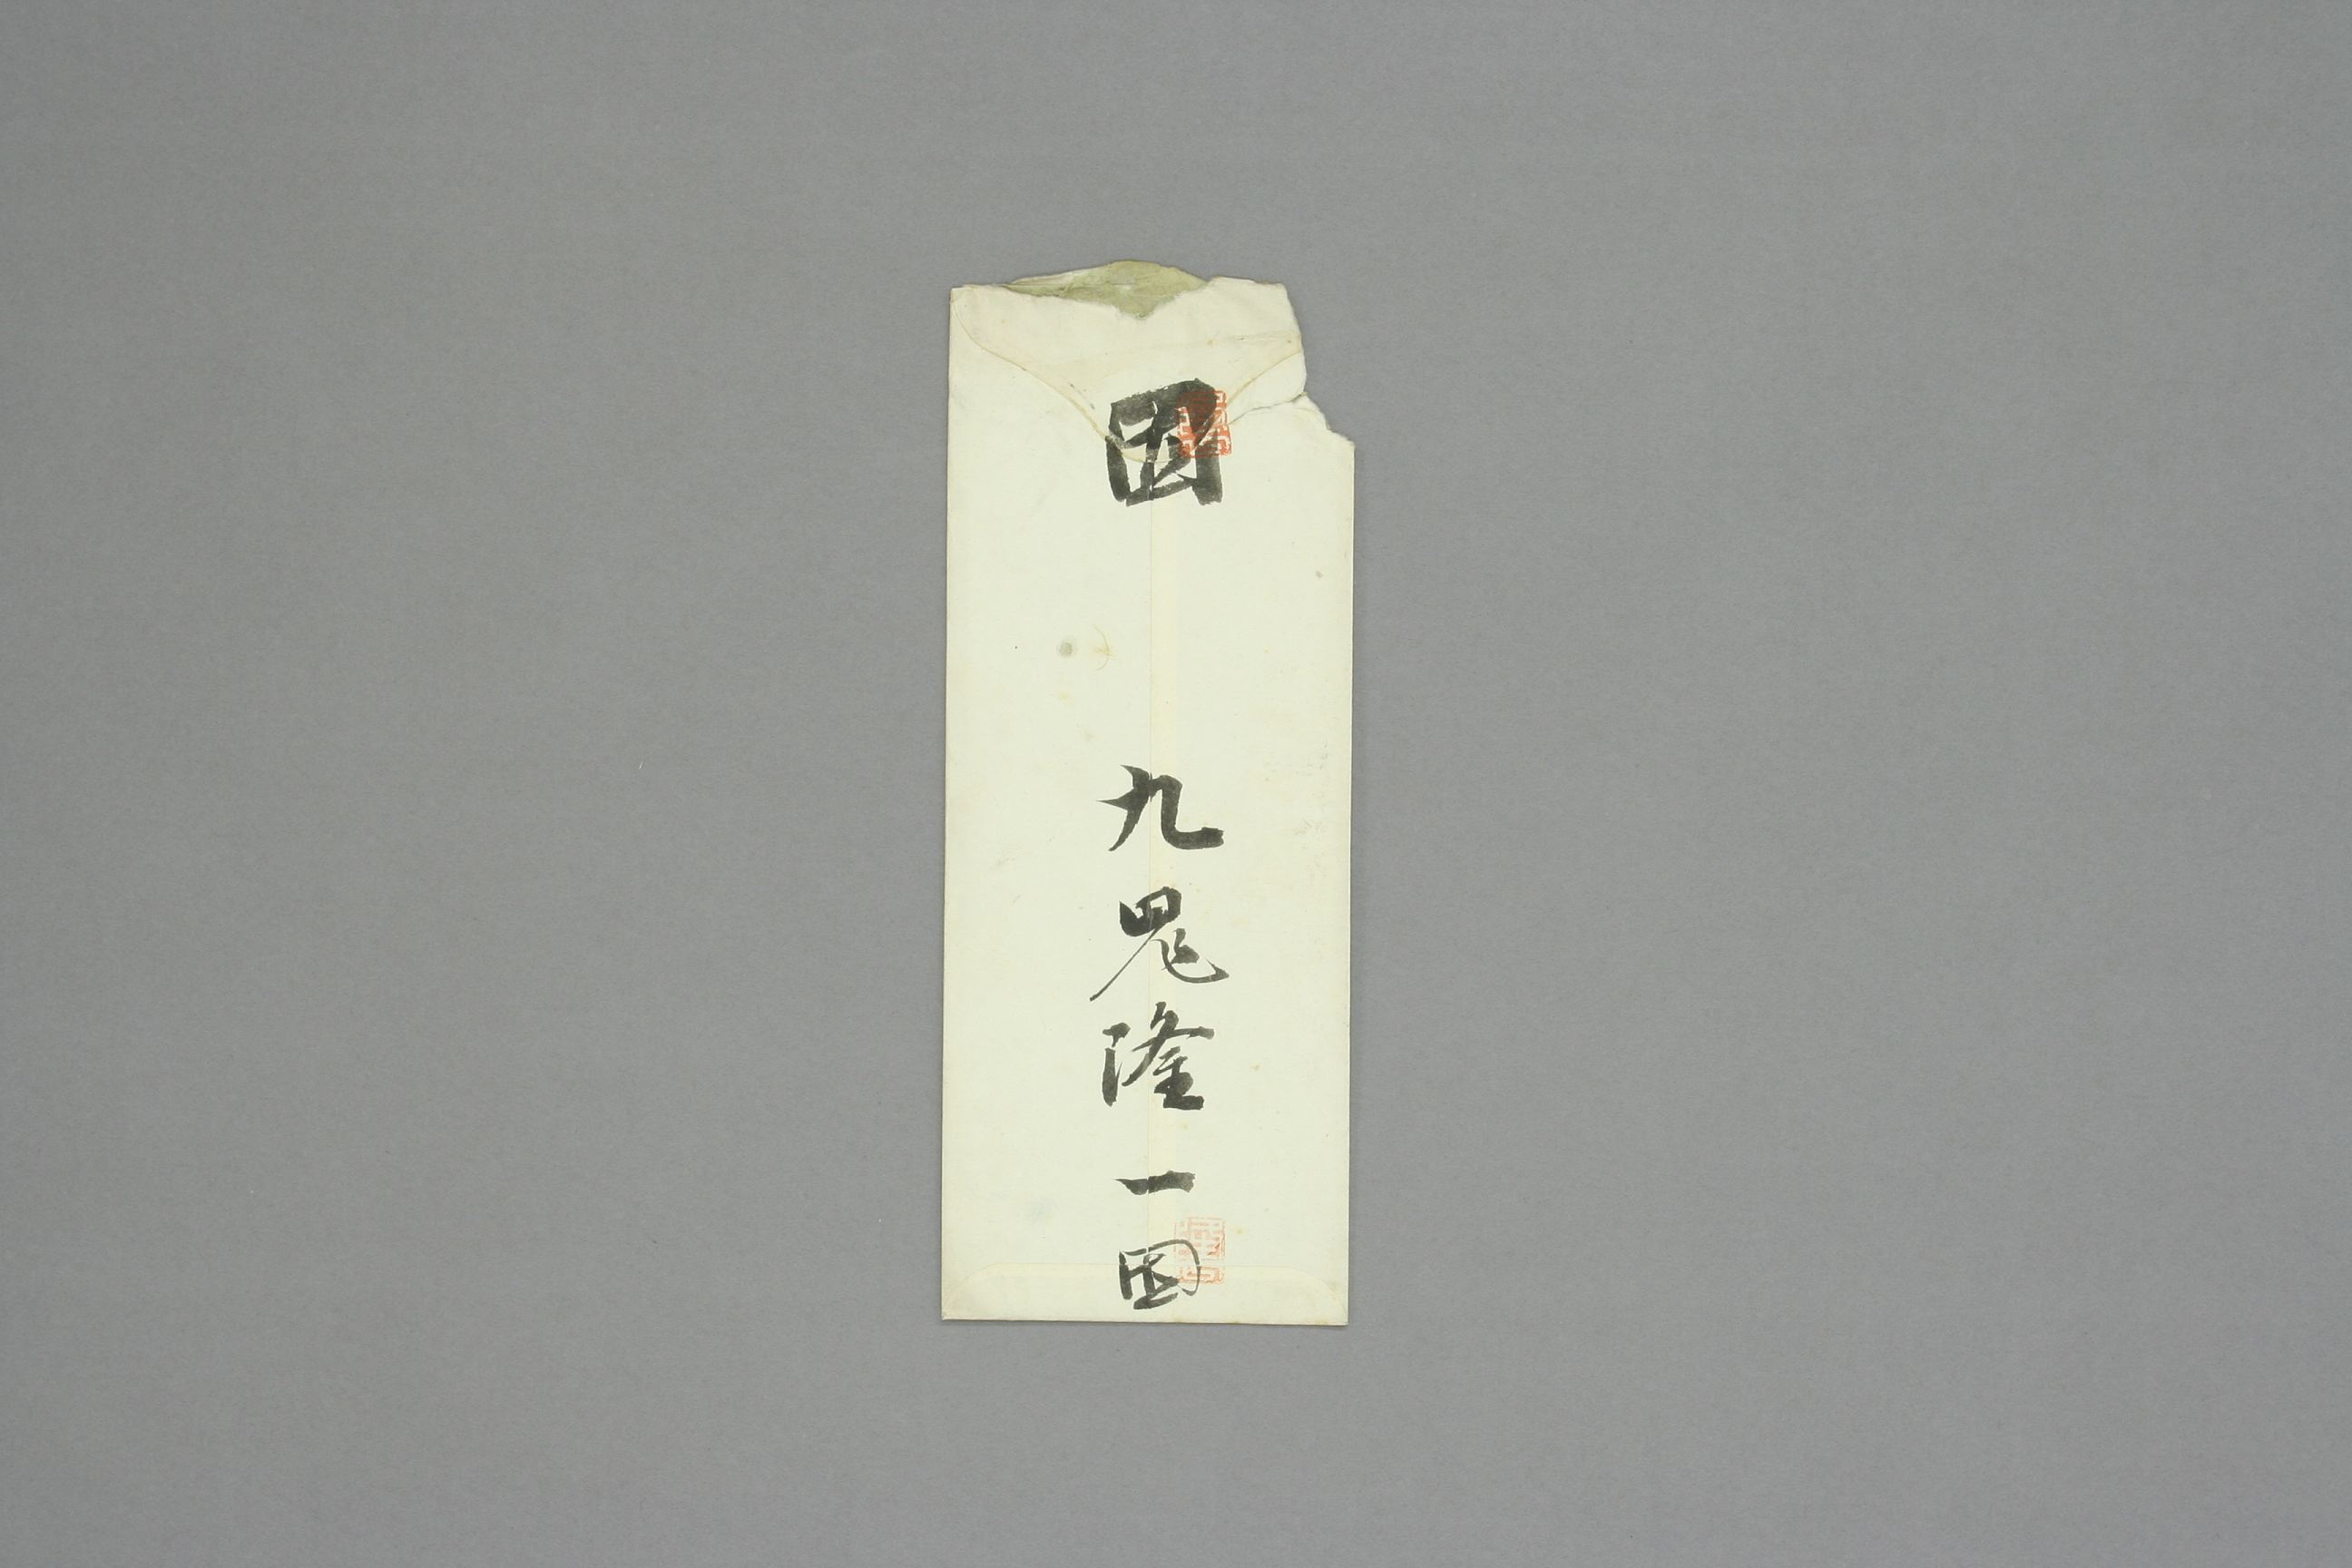 固
九鬼隆一
固